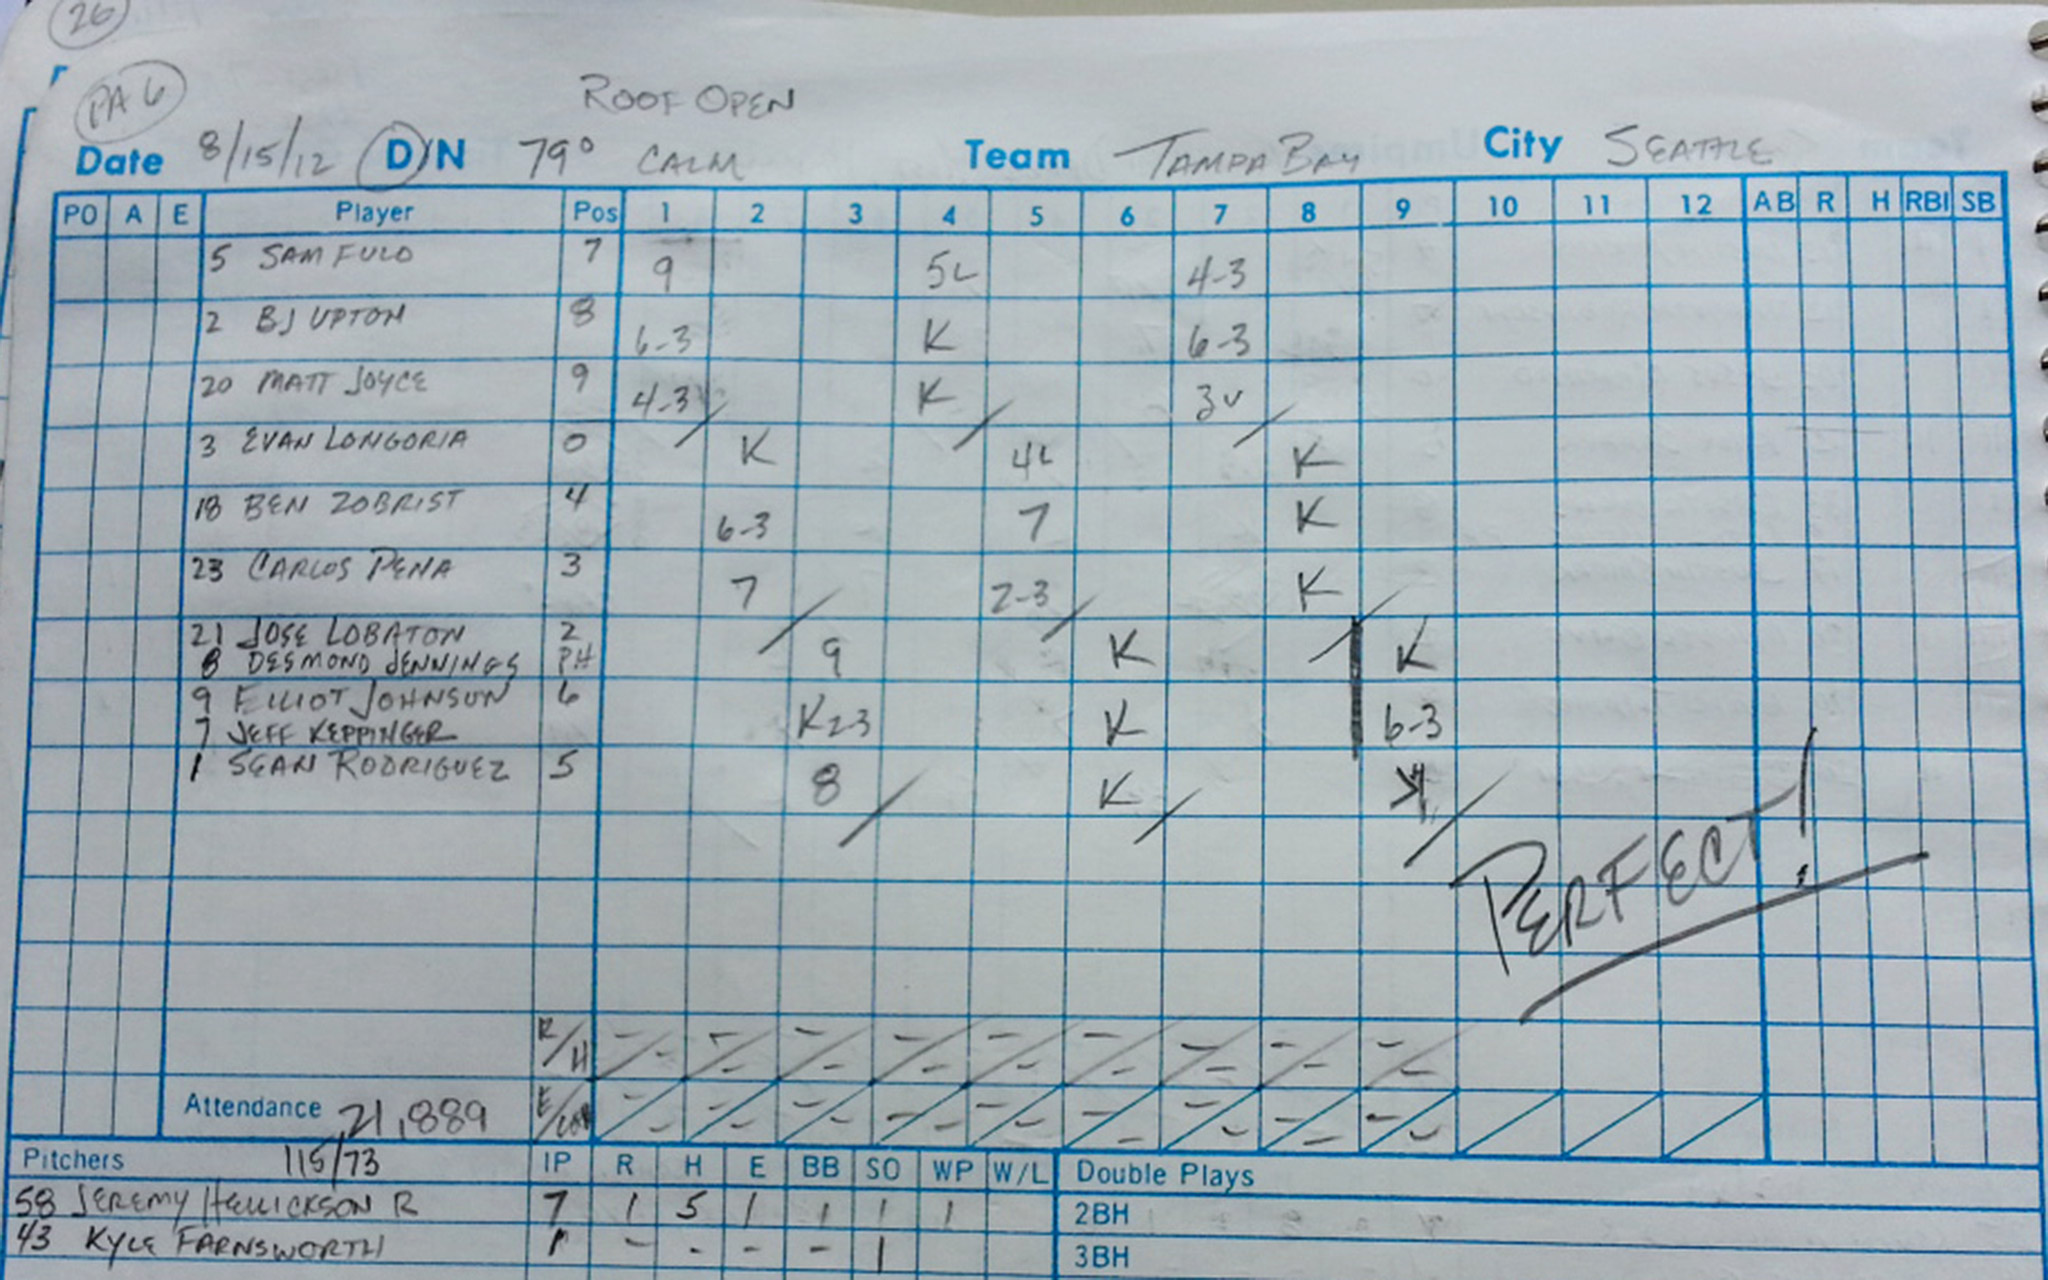 26
PA 6
ROOF OPEN
Date 8/15/12 D/N 79° CALM Team TAMPA BAY City SEATTLE
PO A E Player Pos 1 2 3 4 5 6 7 8 9 10 11 12 AB R H RBI SB
5 SAM FULD 7 9 5L 4-3
2 BJ UPTON 8 6-3 K 6-3
20 MATT JOYCE 9 4-3 K 3U
3 EVAN LONGORIA 0 K 4L K
18 BEN ZOBRIST 4 6-3 7 K
23 CARLOS PENA 3 7 2-3 K
21 JOSE LOBATON 2 9 K K
8 DESMOND JENNINGS PH
9 ELLIOT JOHNSON 6 K23 K 6-3
7 JEFF KEPPINGER
1 SEAN RODRIGUEZ 5 8 K
PERFECT!
R/H - - - - - - - - - - - - - - - - - -
Attendance 21,889 - - - - - - - - - - - - - - - - - -
Pitchers 115/73 IP R H E BB SO WP W/L Double Plays
58 JEREMY HELLICKSON R 7 1 5 1 1 1 1 2BH
43 KYLE FARNSWORTH 1 - - - - 1 3BH